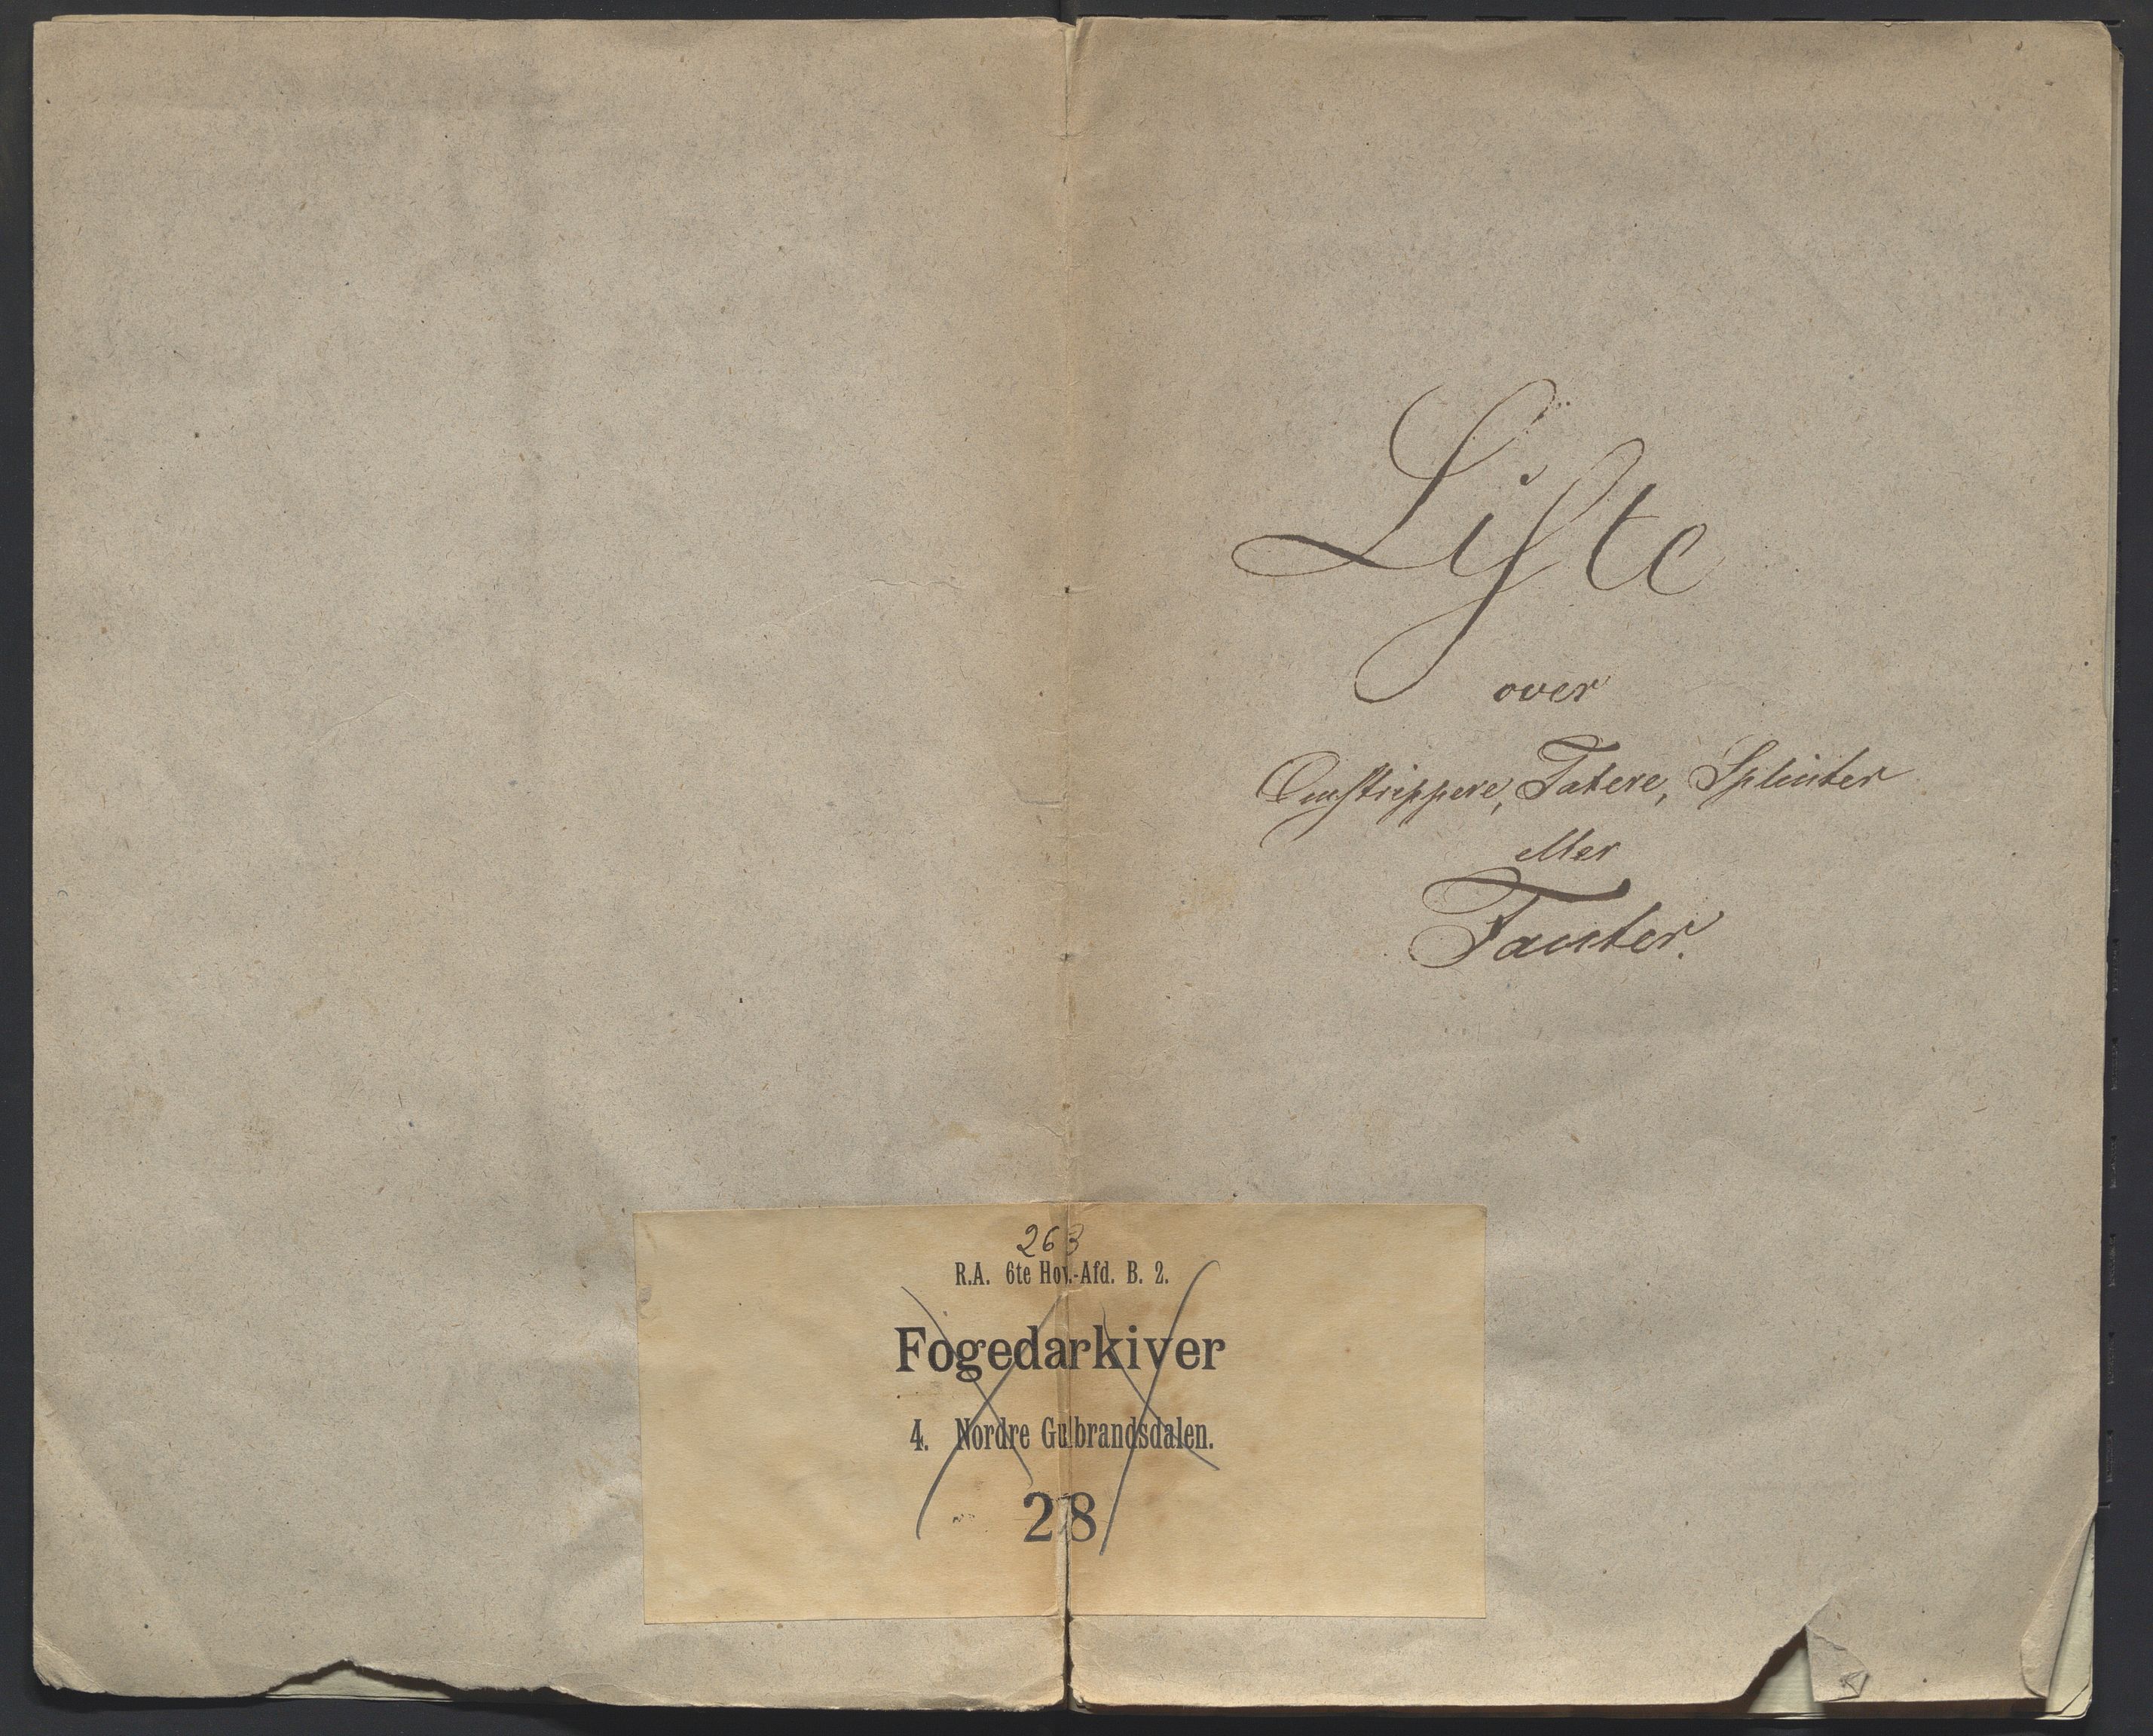 Liste
over
Omstrippere, Tatere, Splinter
eller
Fanter.
263
R.A. 6te Hov.-Afd. B. 2.
Fogedarkiver
4. Nordre Gulbrandsdalen.
28